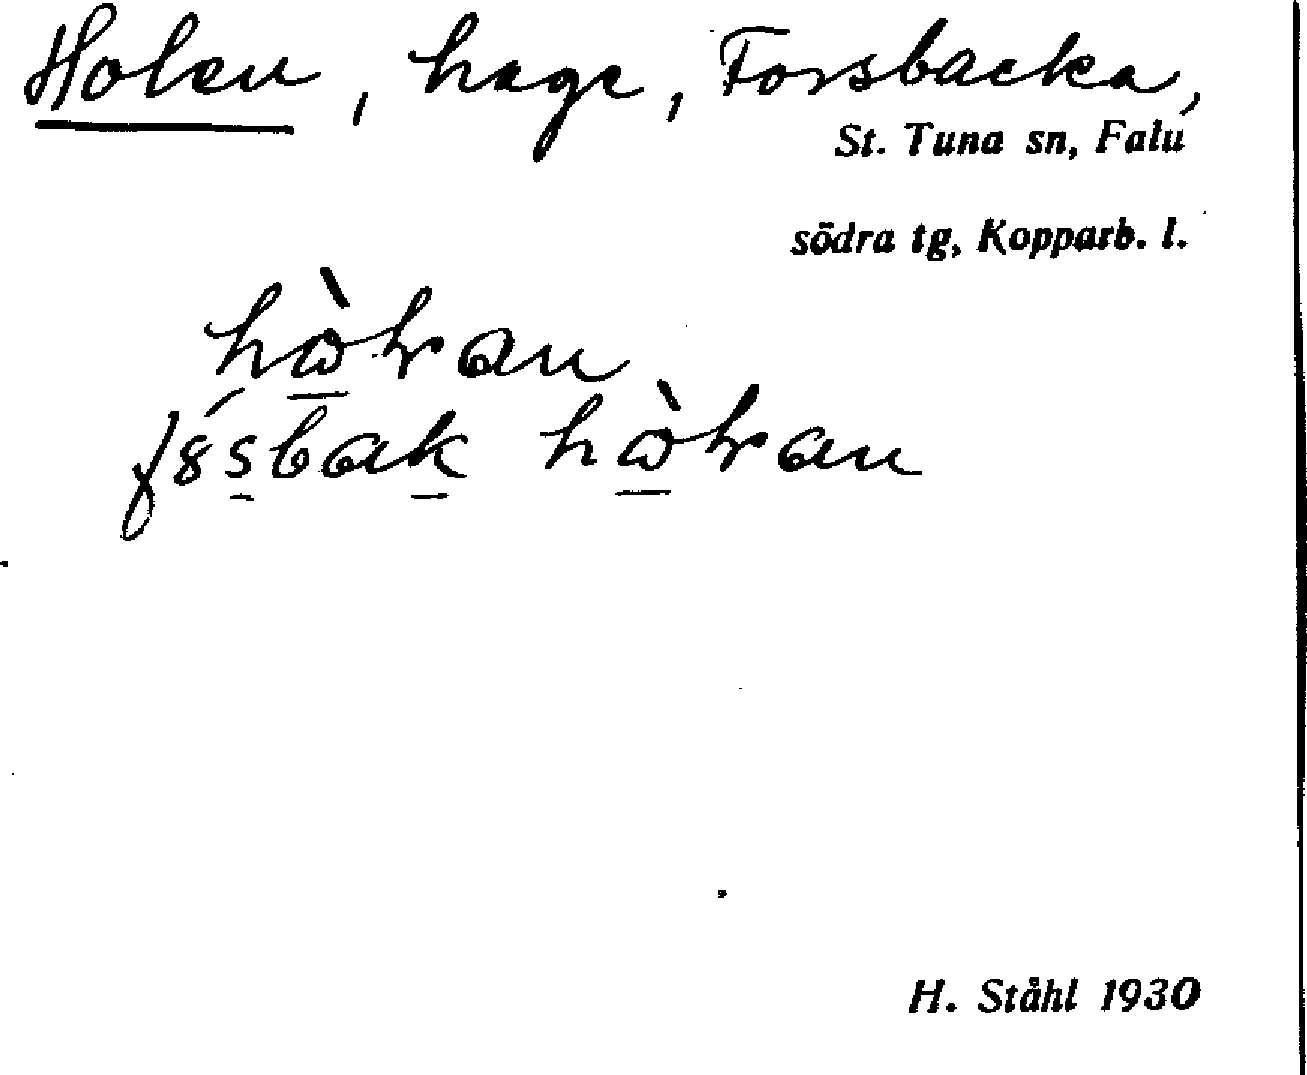 Holen, hage, Forsbacka,
St. Tuna sn, Falu
södra tg, Kopparb. l.
H. Ståhl 1930